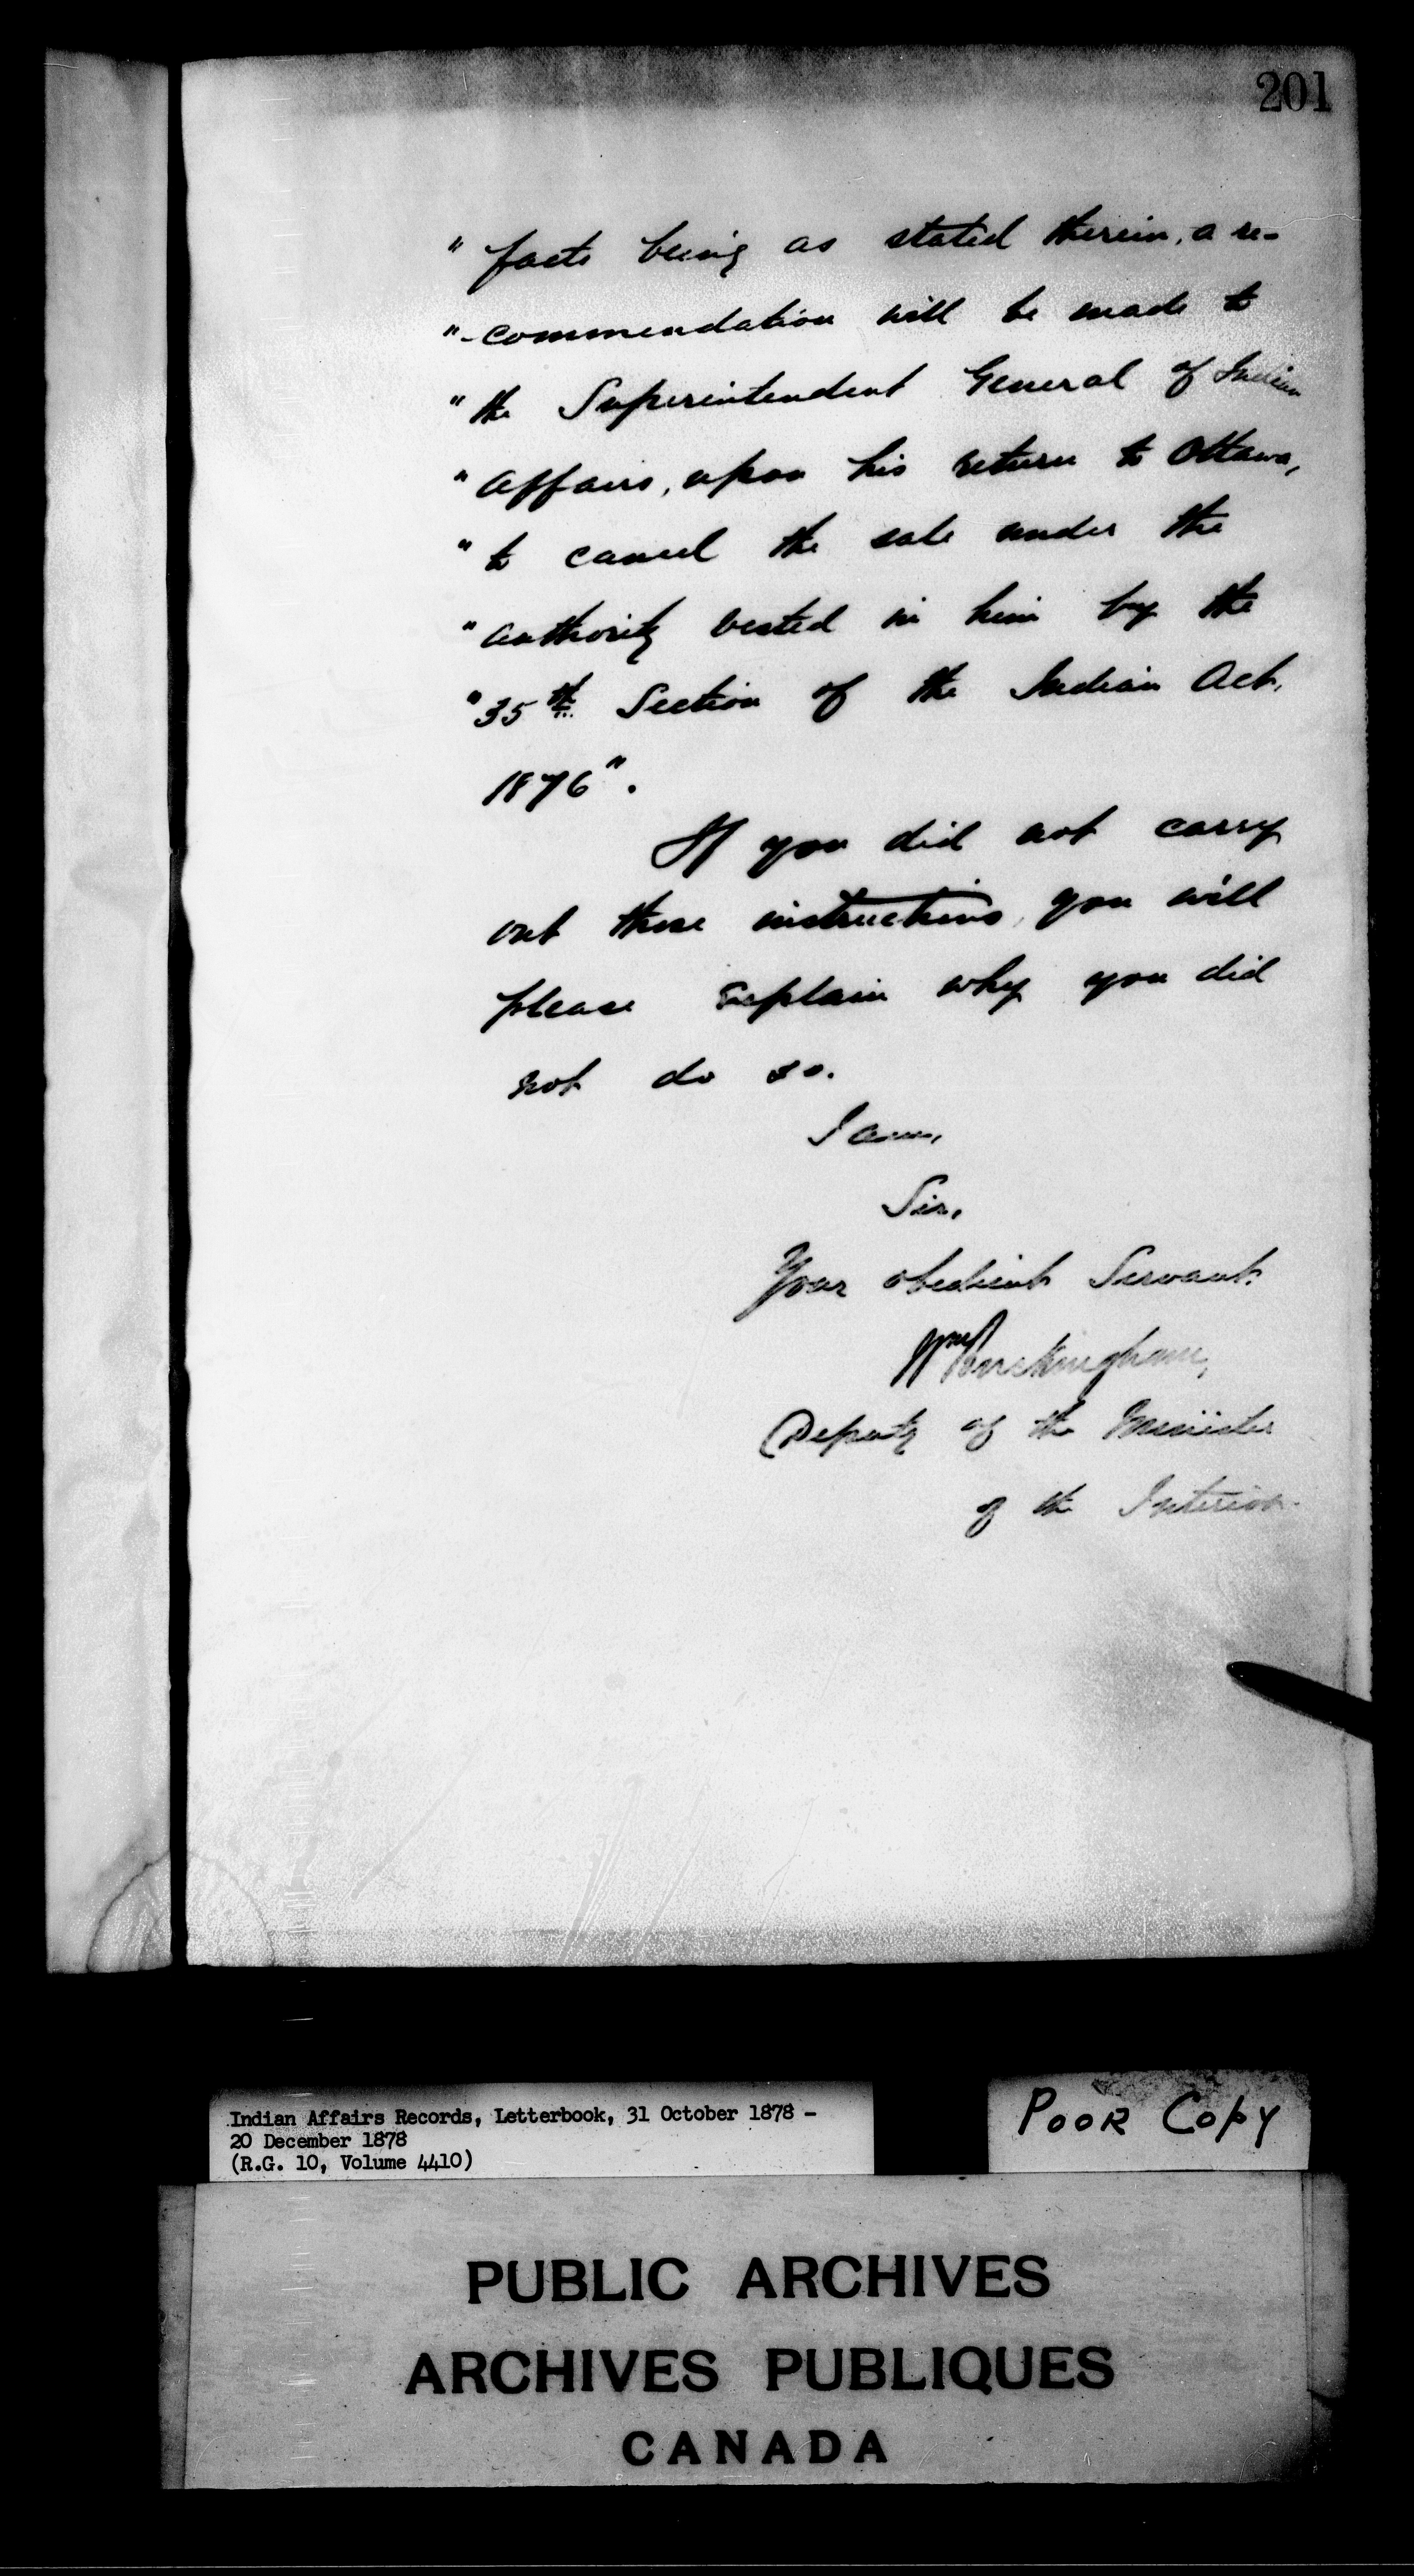 201
" facts being as stated therein, a re-
"-commendation will be made to
" the Superintendent General of Indian
" Affairs, upon his return to Ottawa,
" to cancel the sale under the
" authority vested in him by the
" 35th Section of the Indian Act,
1876".
If you did not carry
out these instructions, you will
please explain why you did
not do so.
I am,
Sir,
Your obedient Servant.
Wm Buckingham,
Deputy of the Minister
of the Interior.
Indian Affairs Records, Letterbook, 31 October 1878 -
20 December 1878
(R.G. 10, Volume 4410)
POOR COPY
PUBLIC ARCHIVES
ARCHIVES PUBLIQUES
CANADA